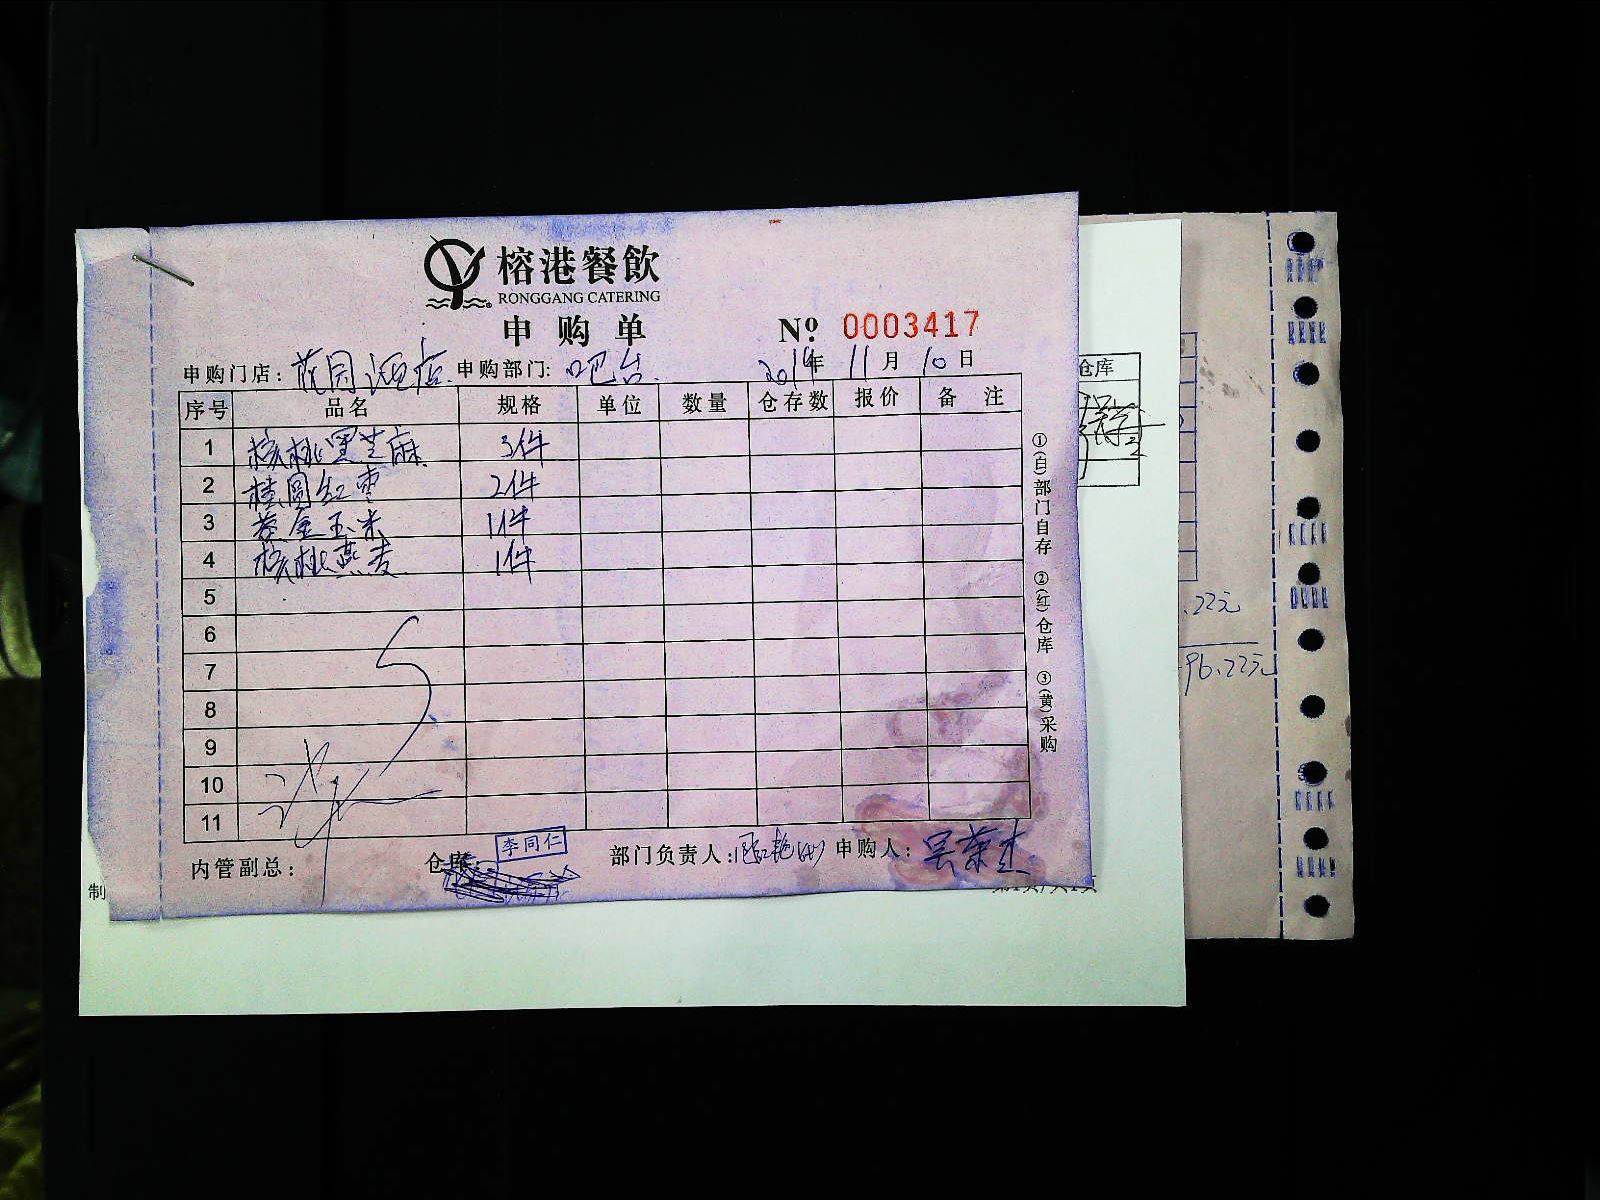 榕港餐飲
RONGGANG CATERING
申购单
№ 0003417
申购门店: 花园酒店 申购部门: 吧台 2014年 11月 10日
序号 品名 规格 单位 数量 仓存数 报价 备注
1 核桃黑芝麻 3件
2 桂圆红枣 2件
3 黄金玉米 1件
4 核桃燕麦 1件
5
6
7
8
9
10
11
内管副总: 仓库: 李同仁 部门负责人: 申购人:
①(白)部门自存 ②(红)仓库 ③(黄)采购
仓库
.22元
96.22元
制